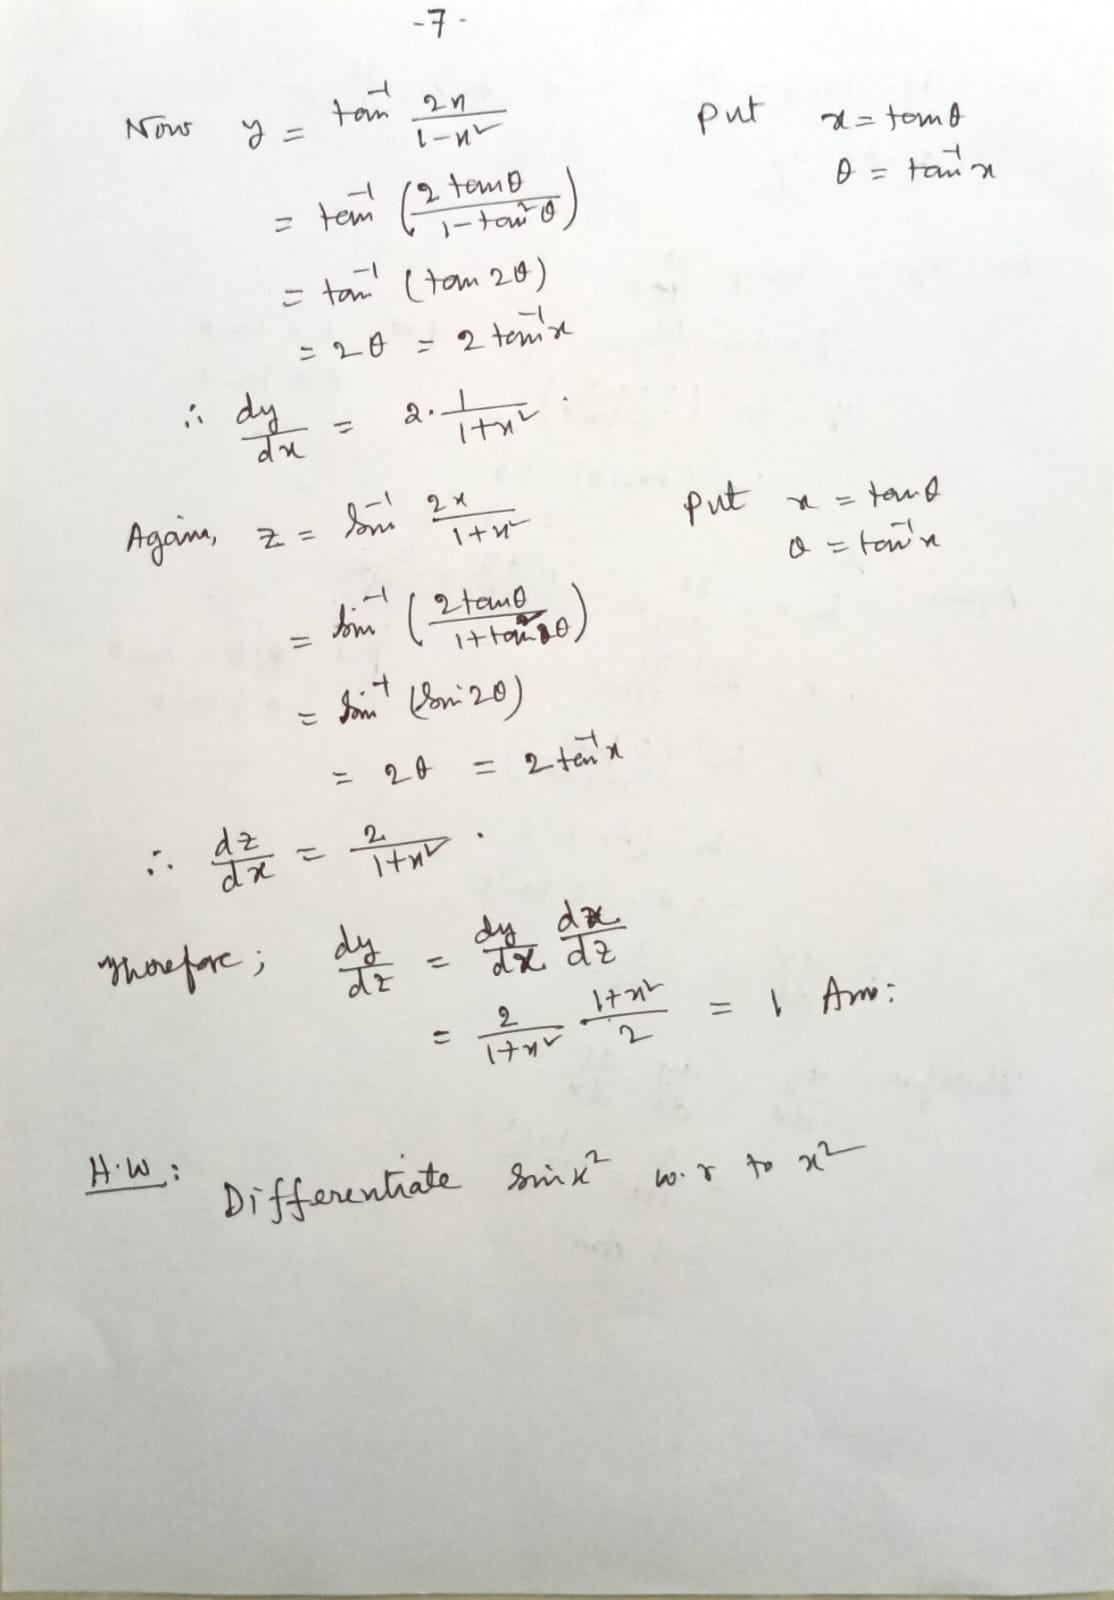 -7-
Now y = tan⁻¹ 2x/(1-x²) Put x = tanθ
θ = tan⁻¹x
= tan⁻¹ (2 tanθ/(1-tan²θ))
= tan⁻¹ (tan 2θ)
= 2θ = 2 tan⁻¹x
∴ dy/dx = 2. 1/(1+x²).
Again, z = sin⁻¹ 2x/(1+x²) Put x = tanθ
θ = tan⁻¹x
= sin⁻¹ (2 tanθ/(1+tan²θ))
= sin⁻¹ (sin 2θ)
= 2θ = 2 tan⁻¹x
∴ dz/dx = 2/(1+x²).
Therefore; dy/dz = dy/dx dx/dz
= 2/(1+x²) (1+x²)/2 = 1 Ans:
H.W: Differentiate sinx² w.r to x²